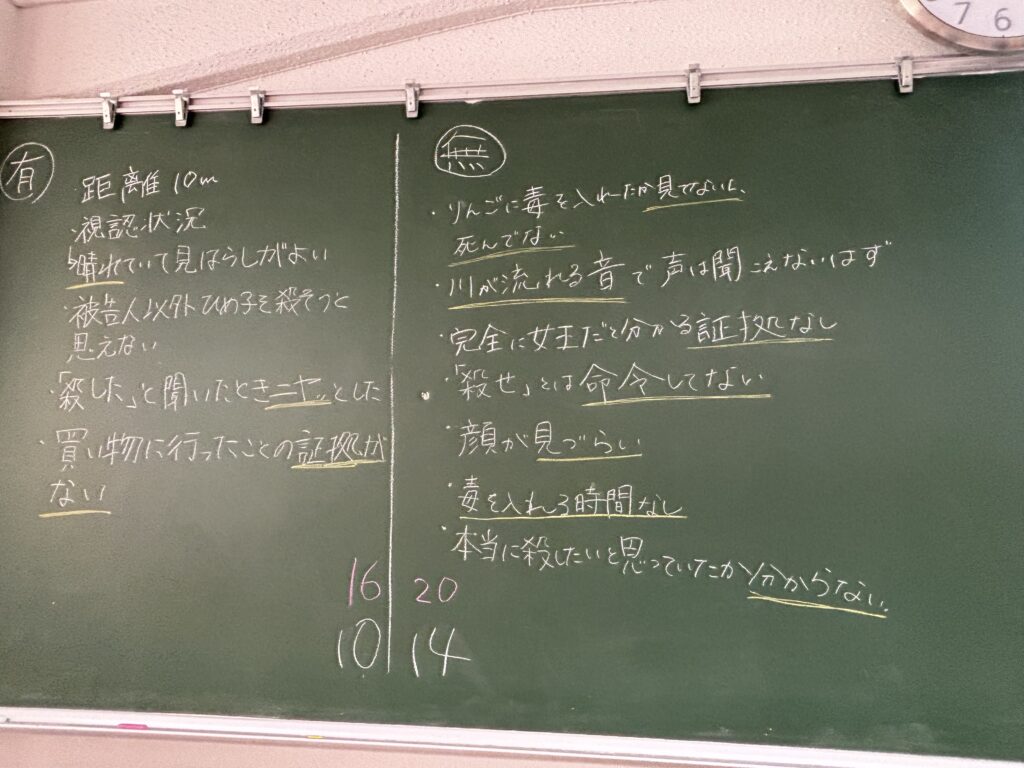 有
距離10m
・視認状況
↳晴れていて見はらしがよい
・被告人以外ひめ子を殺そうと
思えない
・「殺した」と聞いたときニヤッとした
・買い物に行ったことの証拠が
ない
16
10
無
・りんごに毒を入れたか見てないし、
死んでない
・川が流れる音で声は聞こえないはず
・完全に女王だと分かる証拠なし
・「殺せ」とは命令してない
・顔が見づらい
・毒を入れる時間なし
・本当に殺したいと思っていたか分からない。
20
14
7 6